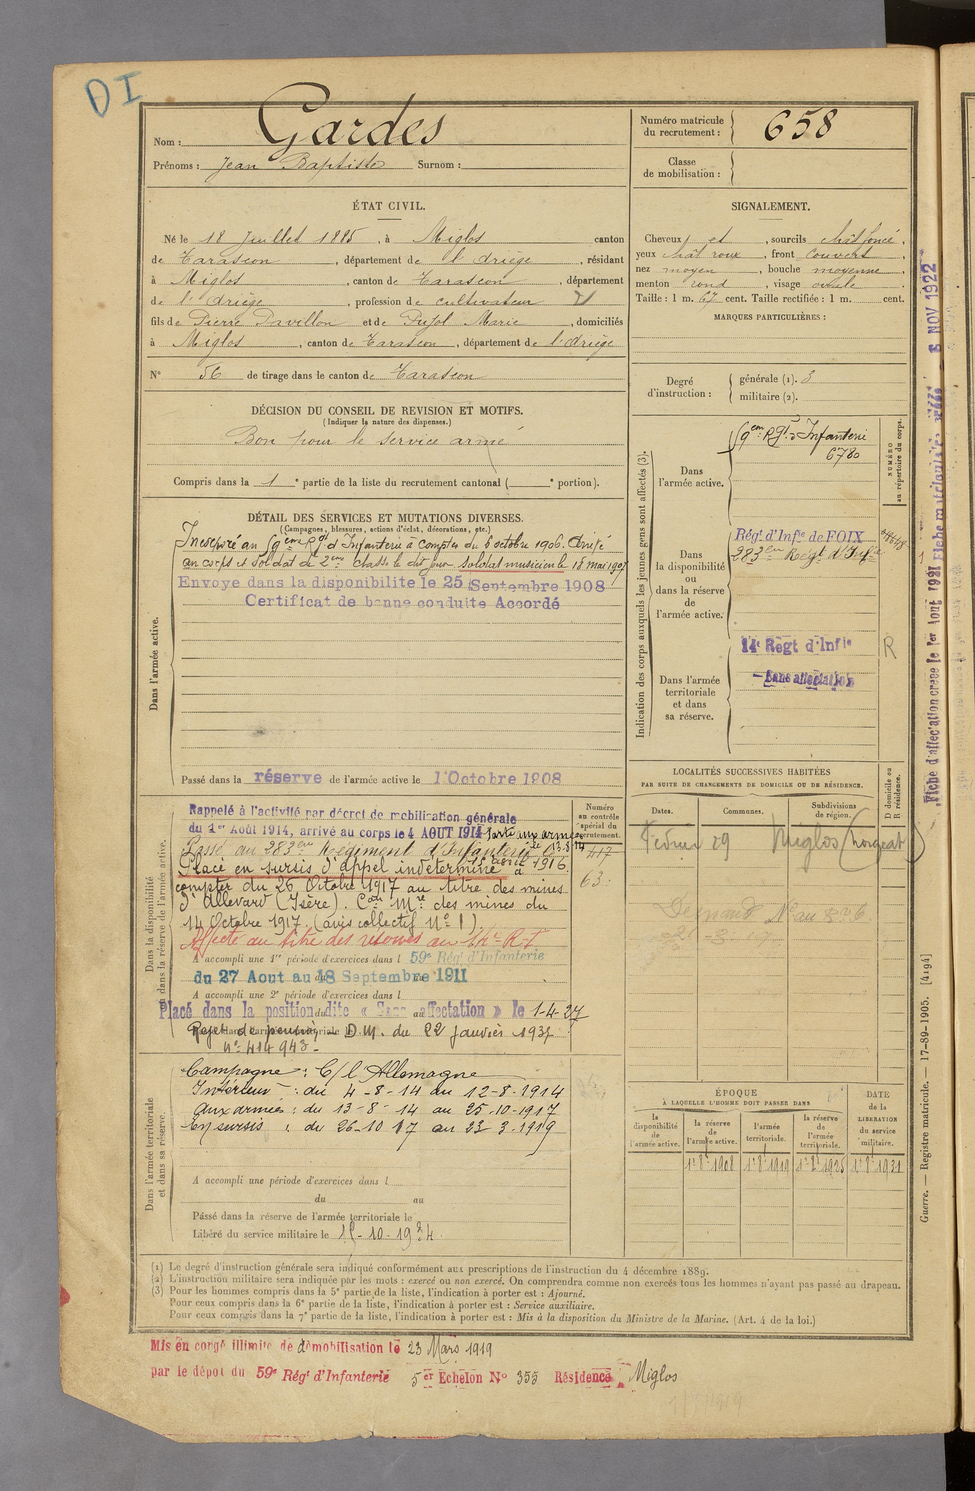 DI
Nom : Gardes
Prénoms : Jean Baptiste Surnom :
Numéro matricule
du recrutement : 658
Classe
de mobilisation :
ÉTAT CIVIL.
Né le 18 Juillet 1885, à Miglos canton
de Tarascon, département de l'Ariège, résidant
à Miglos, canton de Tarascon, département
de l'Ariège, profession de cultivateur
fils de Pierre Pavillon et de Pujol Marie, domiciliés
à Miglos, canton de Tarascon, département de l'Ariège
N° 56 de tirage dans le canton de Tarascon
SIGNALEMENT.
Cheveux et, sourcils chât foncé,
yeux chât roux, front couvert,
nez moyen, bouche moyenne,
menton rond, visage ovale
Taille : 1 m. 67 cent. Taille rectifiée : 1 m. cent.
MARQUES PARTICULIÈRES :
Degré
d'instruction :
générale (1). 3
militaire (2).
DÉCISION DU CONSEIL DE REVISION ET MOTIFS.
(Indiquer la nature des dispenses.)
Bon pour le service armé
Compris dans la 1e partie de la liste du recrutement cantonal ( e portion).
DÉTAIL DES SERVICES ET MUTATIONS DIVERSES.
(Campagnes, blessures, actions d'éclat, décorations, etc.)
Incorporé au 59eme Rgt d'Infanterie à compter du 6 octobre 1906. Arrivé
au corps et soldat de 2eme classe le dit jour. Soldat musicien le 18 mai 1907
Envoyé dans la disponibilité le 25 Septembre 1908
Certificat de bonne conduite Accordé
Dans l'armée active.
Passé dans la réserve de l'armée active le 1 Octobre 1908
Indication des corps auxquels les jeunes gens sont affectés (3).
Dans
l'armée active.
59em Rgt d'Infanterie
6780
NUMÉRO
au répertoire du corps.
Dans
la disponibilité
ou
dans la réserve
de
l'armée active.
Régt d'Infie de FOIX
283em Regt d'Infie
14e Regt d'Infie
R
Sans affectation
Dans l'armée
territoriale
et dans
sa réserve.
LOCALITÉS SUCCESSIVES HABITÉES
PAR SUITE DE CHANGEMENTS DE DOMICILE OU DE RÉSIDENCE.
Dates.
Communes.
Subdivisions
de région.
D domicile ou
R résidence.
Février 29 Miglos (Norgeat)
Dans la disponibilité
ou dans la réserve de l'armée active.
Numéro
au contrôle
spécial du
recrutement.
417
63
Rappelé à l'activité par décret de mobilisation générale
du 1er Août 1914, arrivé au corps le 4 AOUT 1914
Passé au 283eme Regiment d'Infanterie
Placé en sursis d'appel indéterminé à
compter du 26 Octobre 1917 au titre des mines
d'Allevard (Isère). des mines du
14 Octobre 1917. (avis collectif N° 1)
Affecté au titre des réserves au 14e R.I.
A accompli une 1re période d'exercices dans l 59e Régt d'Infanterie
du 27 Aout au 18 Septembre 1911
A accompli une 2e période d'exercices dans l
Placé dans la position dite « Sans affectation » le 1-4-27
Rejet de pension D.M. du 22 Janvier 1931
n° 414 943
Dans l'armée territoriale
et dans sa réserve.
Campagne : C/ l'Allemagne
Intérieur : du 4-8-14 au 12-8-1914
Aux armées : du 13-8-14 au 25-10-1917
En sursis : du 26-10-17 au 23-3-1919
A accompli une période d'exercices dans l
du au
Passé dans la réserve de l'armée territoriale le
Libéré du service militaire le 15-10-1934
ÉPOQUE
À LAQUELLE L'HOMME DOIT PASSER DANS
la
disponibilité
de
l'armée active.
la réserve
de
l'armée active.
l'armée
territoriale.
la réserve
de
l'armée
territoriale.
DATE
de la
LIBÉRATION
du service
militaire.
1er 8bre 1908 1er 8bre 1919 1er 8bre 1925 1er 8bre 1931
(1) Le degré d'instruction générale sera indiqué conformément aux prescriptions de l'instruction du 4 décembre 1889.
(2) L'instruction militaire sera indiquée par les mots : exercé ou non exercé. On comprendra comme non exercés tous les hommes n'ayant pas passé au drapeau.
(3) Pour les hommes compris dans la 5e partie de la liste, l'indication à porter est : Ajourné.
Pour ceux compris dans la 6e partie de la liste, l'indication à porter est : Service auxiliaire.
Pour ceux compris dans la 7e partie de la liste, l'indication à porter est : Mis à la disposition du Ministre de la Marine. (Art. 4 de la loi.)
Mis en congé illimité de démobilisation le 23 Mars 1919
par le dépôt du 59e Régt d'Infanterie 5er Echelon N° 353 Résidence Miglos
Guerre. — Registre matricule. — 17-89-1905. [4194]
Fiche d'affectation créée le 1er Aout 1921